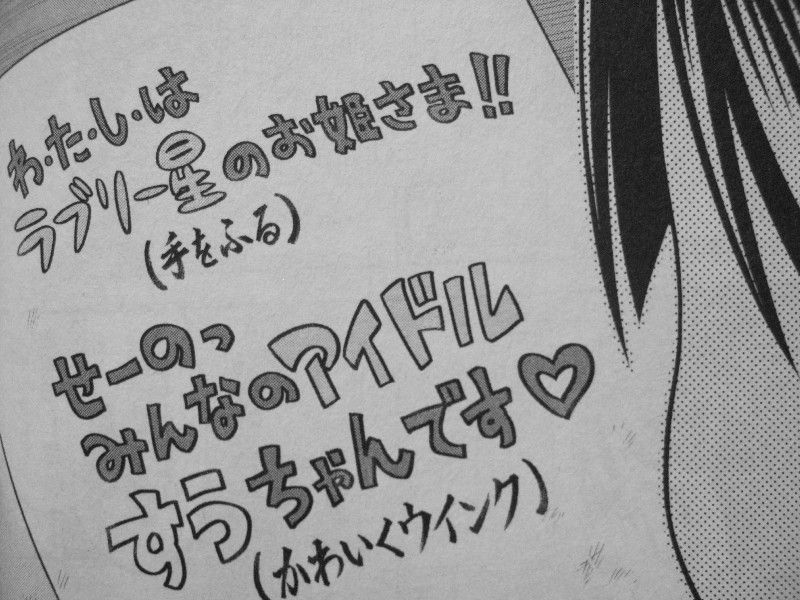 わ・た・し・は
ラブリー星のお姫さま!!
(手をふる)
せーのっ
みんなのアイドル
すうちゃんです♡
(かわいくウインク)